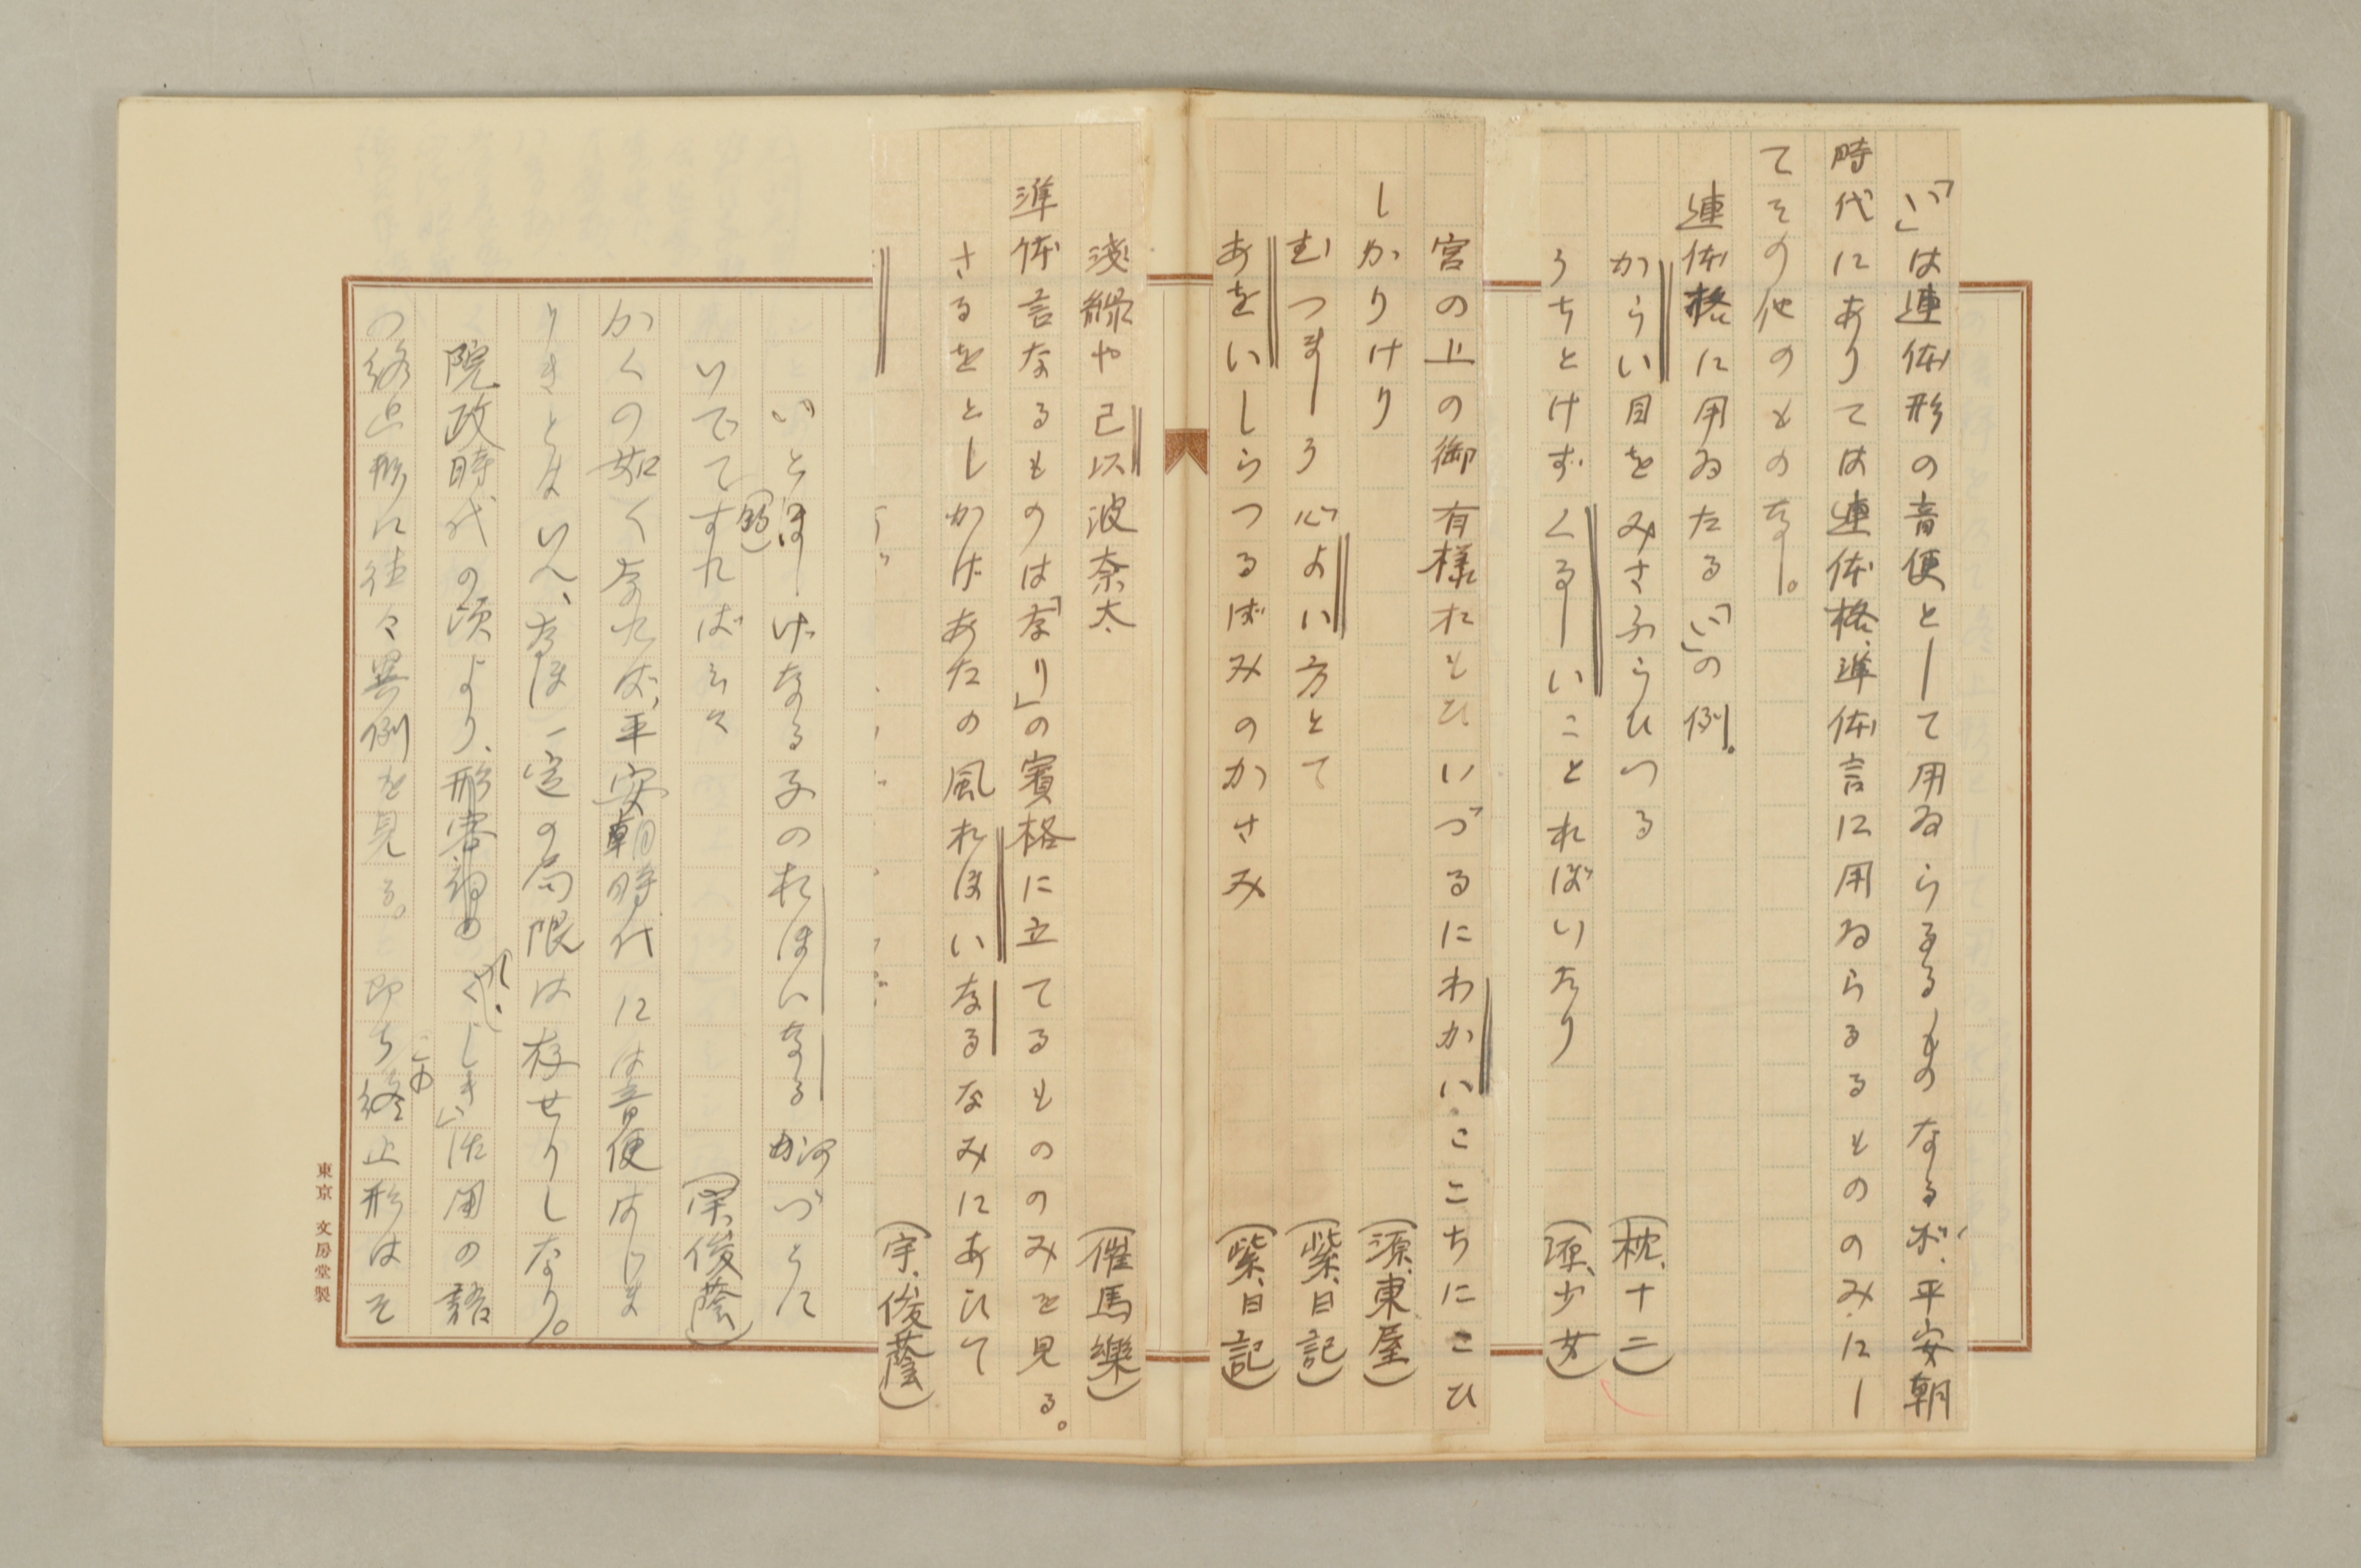 「い」は連体形の音便として用ゐらるるものなるが、平安朝
時代にありては連体格、準体言に用ゐらるるもののみにし
てその他のものなし。
連体格に用ゐたる「い」の例。
からい目をみさふらひつる（枕、十二）
うちとけずくるしいことればいたり（源、少女）
宮の上の御有様れもひいづるにわかいここちにこひ
しかりけり（源、東屋）
むつましう心よい方とて（紫、日記）
あをいしらつるばみのかさみ（紫、日記）
浅緑や己以波奈太（催馬樂）
準体言なるものは「なり」の賓格に立てるもののみを見る。
さるをとしかげあたの風れほいなるなみにあひて
（宇、俊蔭）
いとほしげなる子のれほいなる河づらに
いでてすればミ々（宇、俊蔭）
（釣）
かくの如くなれば、平安朝時代には音便はじま
りきとはいへ、なほ一定の局限は存せりしなり。
院政時代の頃より、形容詞の く しき」活用の語
の終止形に往々異例を見る。即ち終止形はそ
この
東京 文房堂製